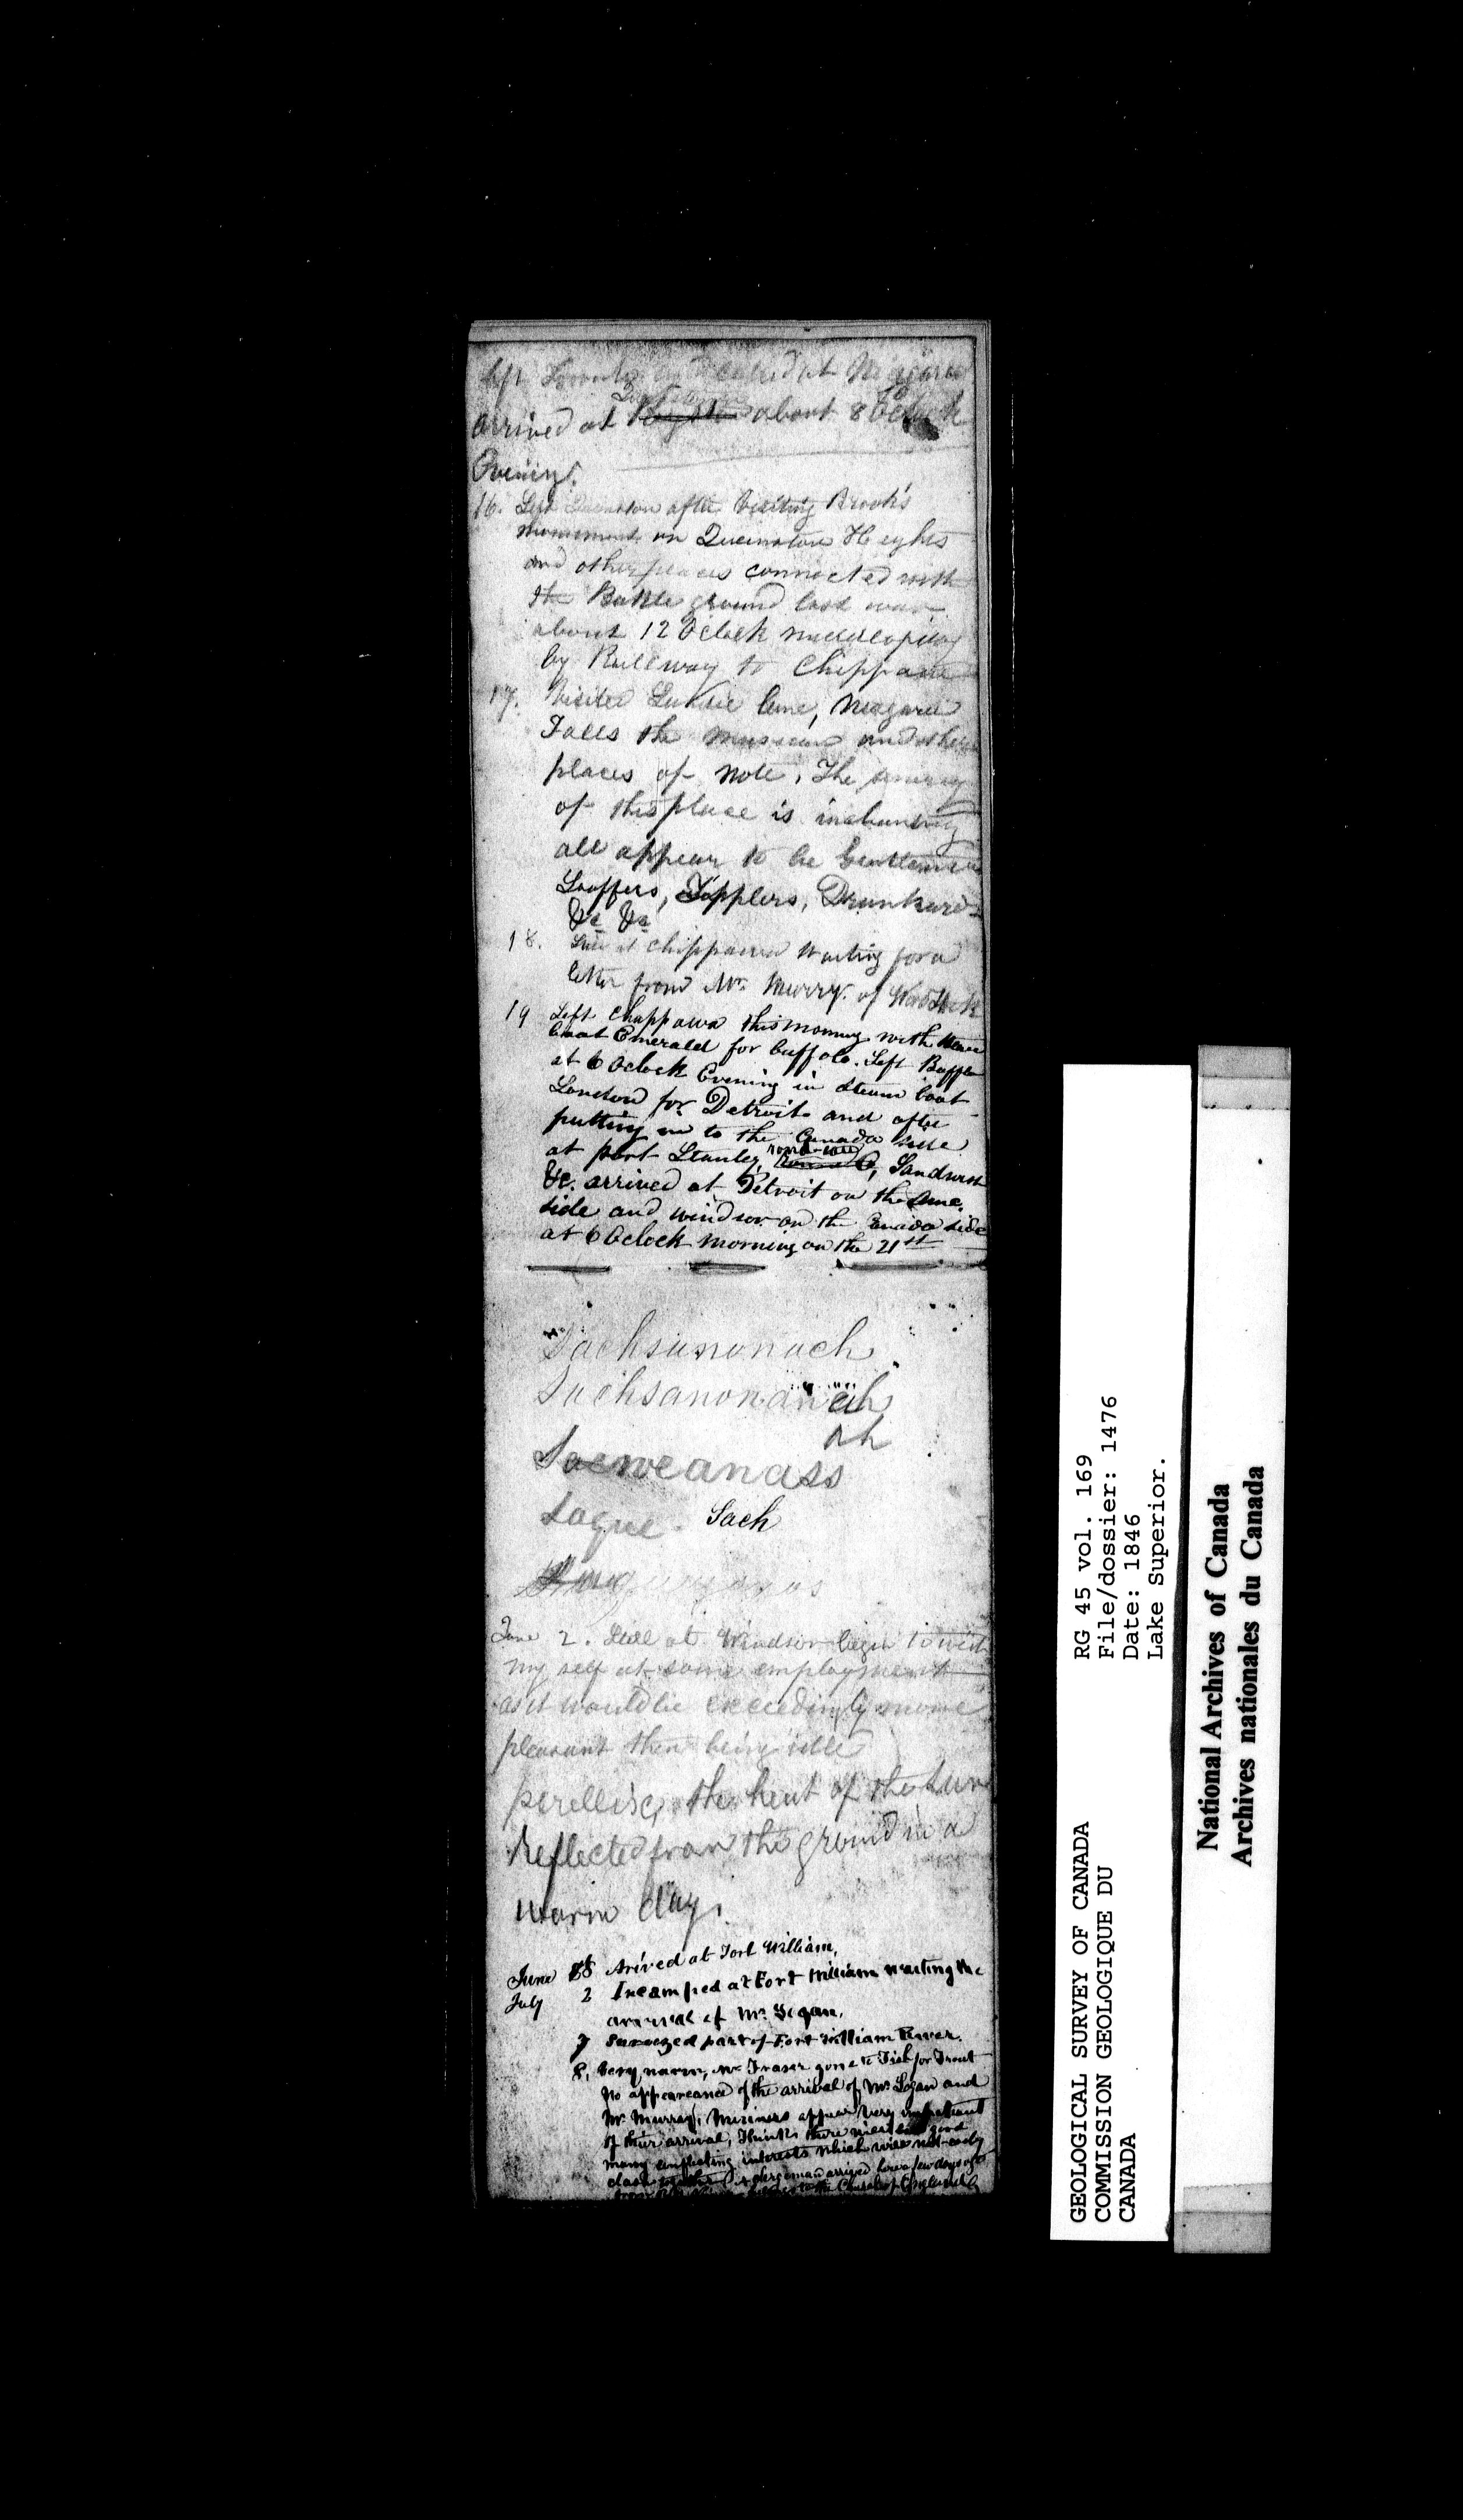 left Toronto called at Niagara
arrived at about 8 OClock
Evening.
16. Left Queenston after Visiting Brock's
monument on Queenston Heights
and other places connected with
the Battle ground last war
about 12 Oclock
by Railway to Chippawa
17. Visited Lundie lane, Niagara
Falls the museum and other
places of note. The
of this place is inchanting
all appear to be Gentlemen
Loaffers, Tipplers, Drunkards
&c &c
18. Still at Chippawa Waiting for a
letter from Mr. Murry. of Woodstock
19 Left Chippawa this morning with steam
boat Emerald for buffalo. Left Buffalo
at 6 Oclock Evening in steam boat
London for Detroit and after
putting in to the Canada side
at port Stanley, rond-eau, Sandwich
&c. arrived at Detroit on the Ame.
side and windsor on the Canada side
at 6 Oclock morning on the 21st
Sachsanonach
Sachsanonanach
ah
Saeweanass
Sague. Sach
June 2. Still at Windsor begin to wish
my self at some employment
as it would be exceedingly more
pleasant then being idle
the heat of the Sun
Reflected from the ground in a
warm day.
June 28 Arived at Fort William.
July 2 Incamped at Fort William waiting the
arrival of Mr. Logan.
7 Surveyed part of Fort William River.
8. Very warm, Mr Fraser gone to Fish for Trout
No appeareance of the arrival of Mr Logan and
Mr. Murray, Miners appear very impatient
of their arrival, Thinks there will be a good
many conflicting interests which will not easly
clergeman arrived here a few days ago
Church of England
RG 45 vol. 169
File/dossier: 1476
Date: 1846
Lake Superior.
GEOLOGICAL SURVEY OF CANADA
COMMISSION GEOLOGIQUE DU
CANADA
National Archives of Canada
Archives nationales du Canada